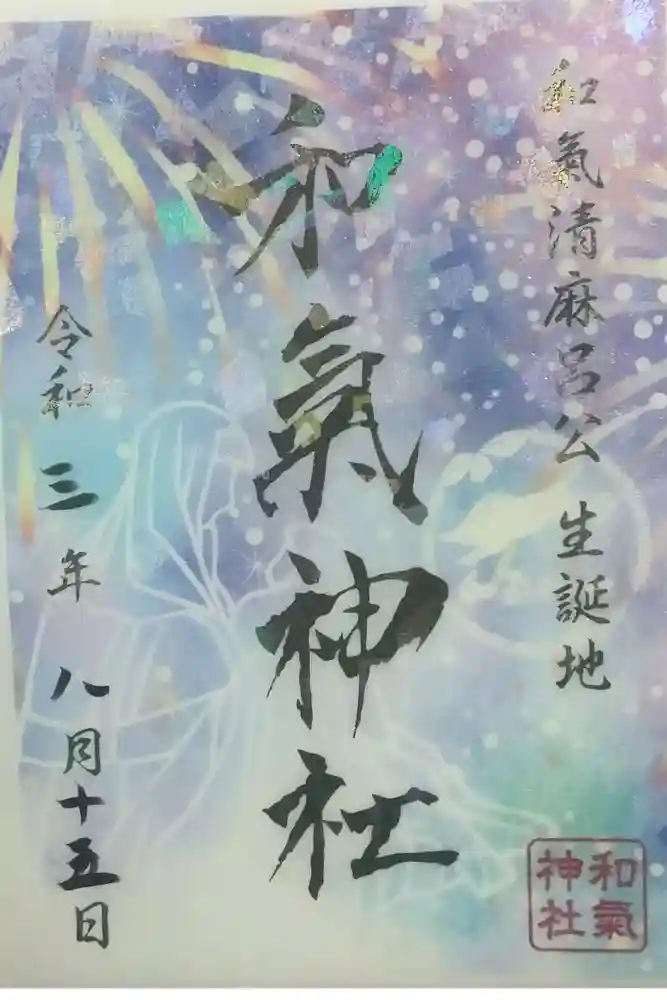 和氣清麻呂公 生誕地
和氣神社
令和三年 八月十五日
和氣
神社